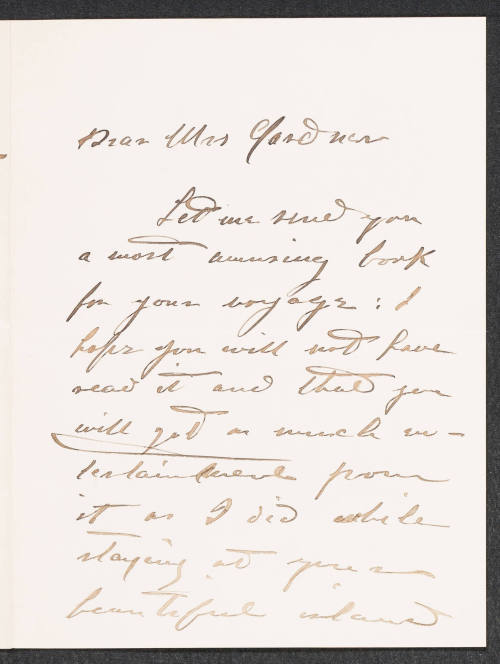 Dear Mrs Gardner
Let me send you
a most amusing book
for your voyage : I
hope you will not have
read it and that you
will get as much en-
tertainment from
it as I did while
staying at your
beautiful island